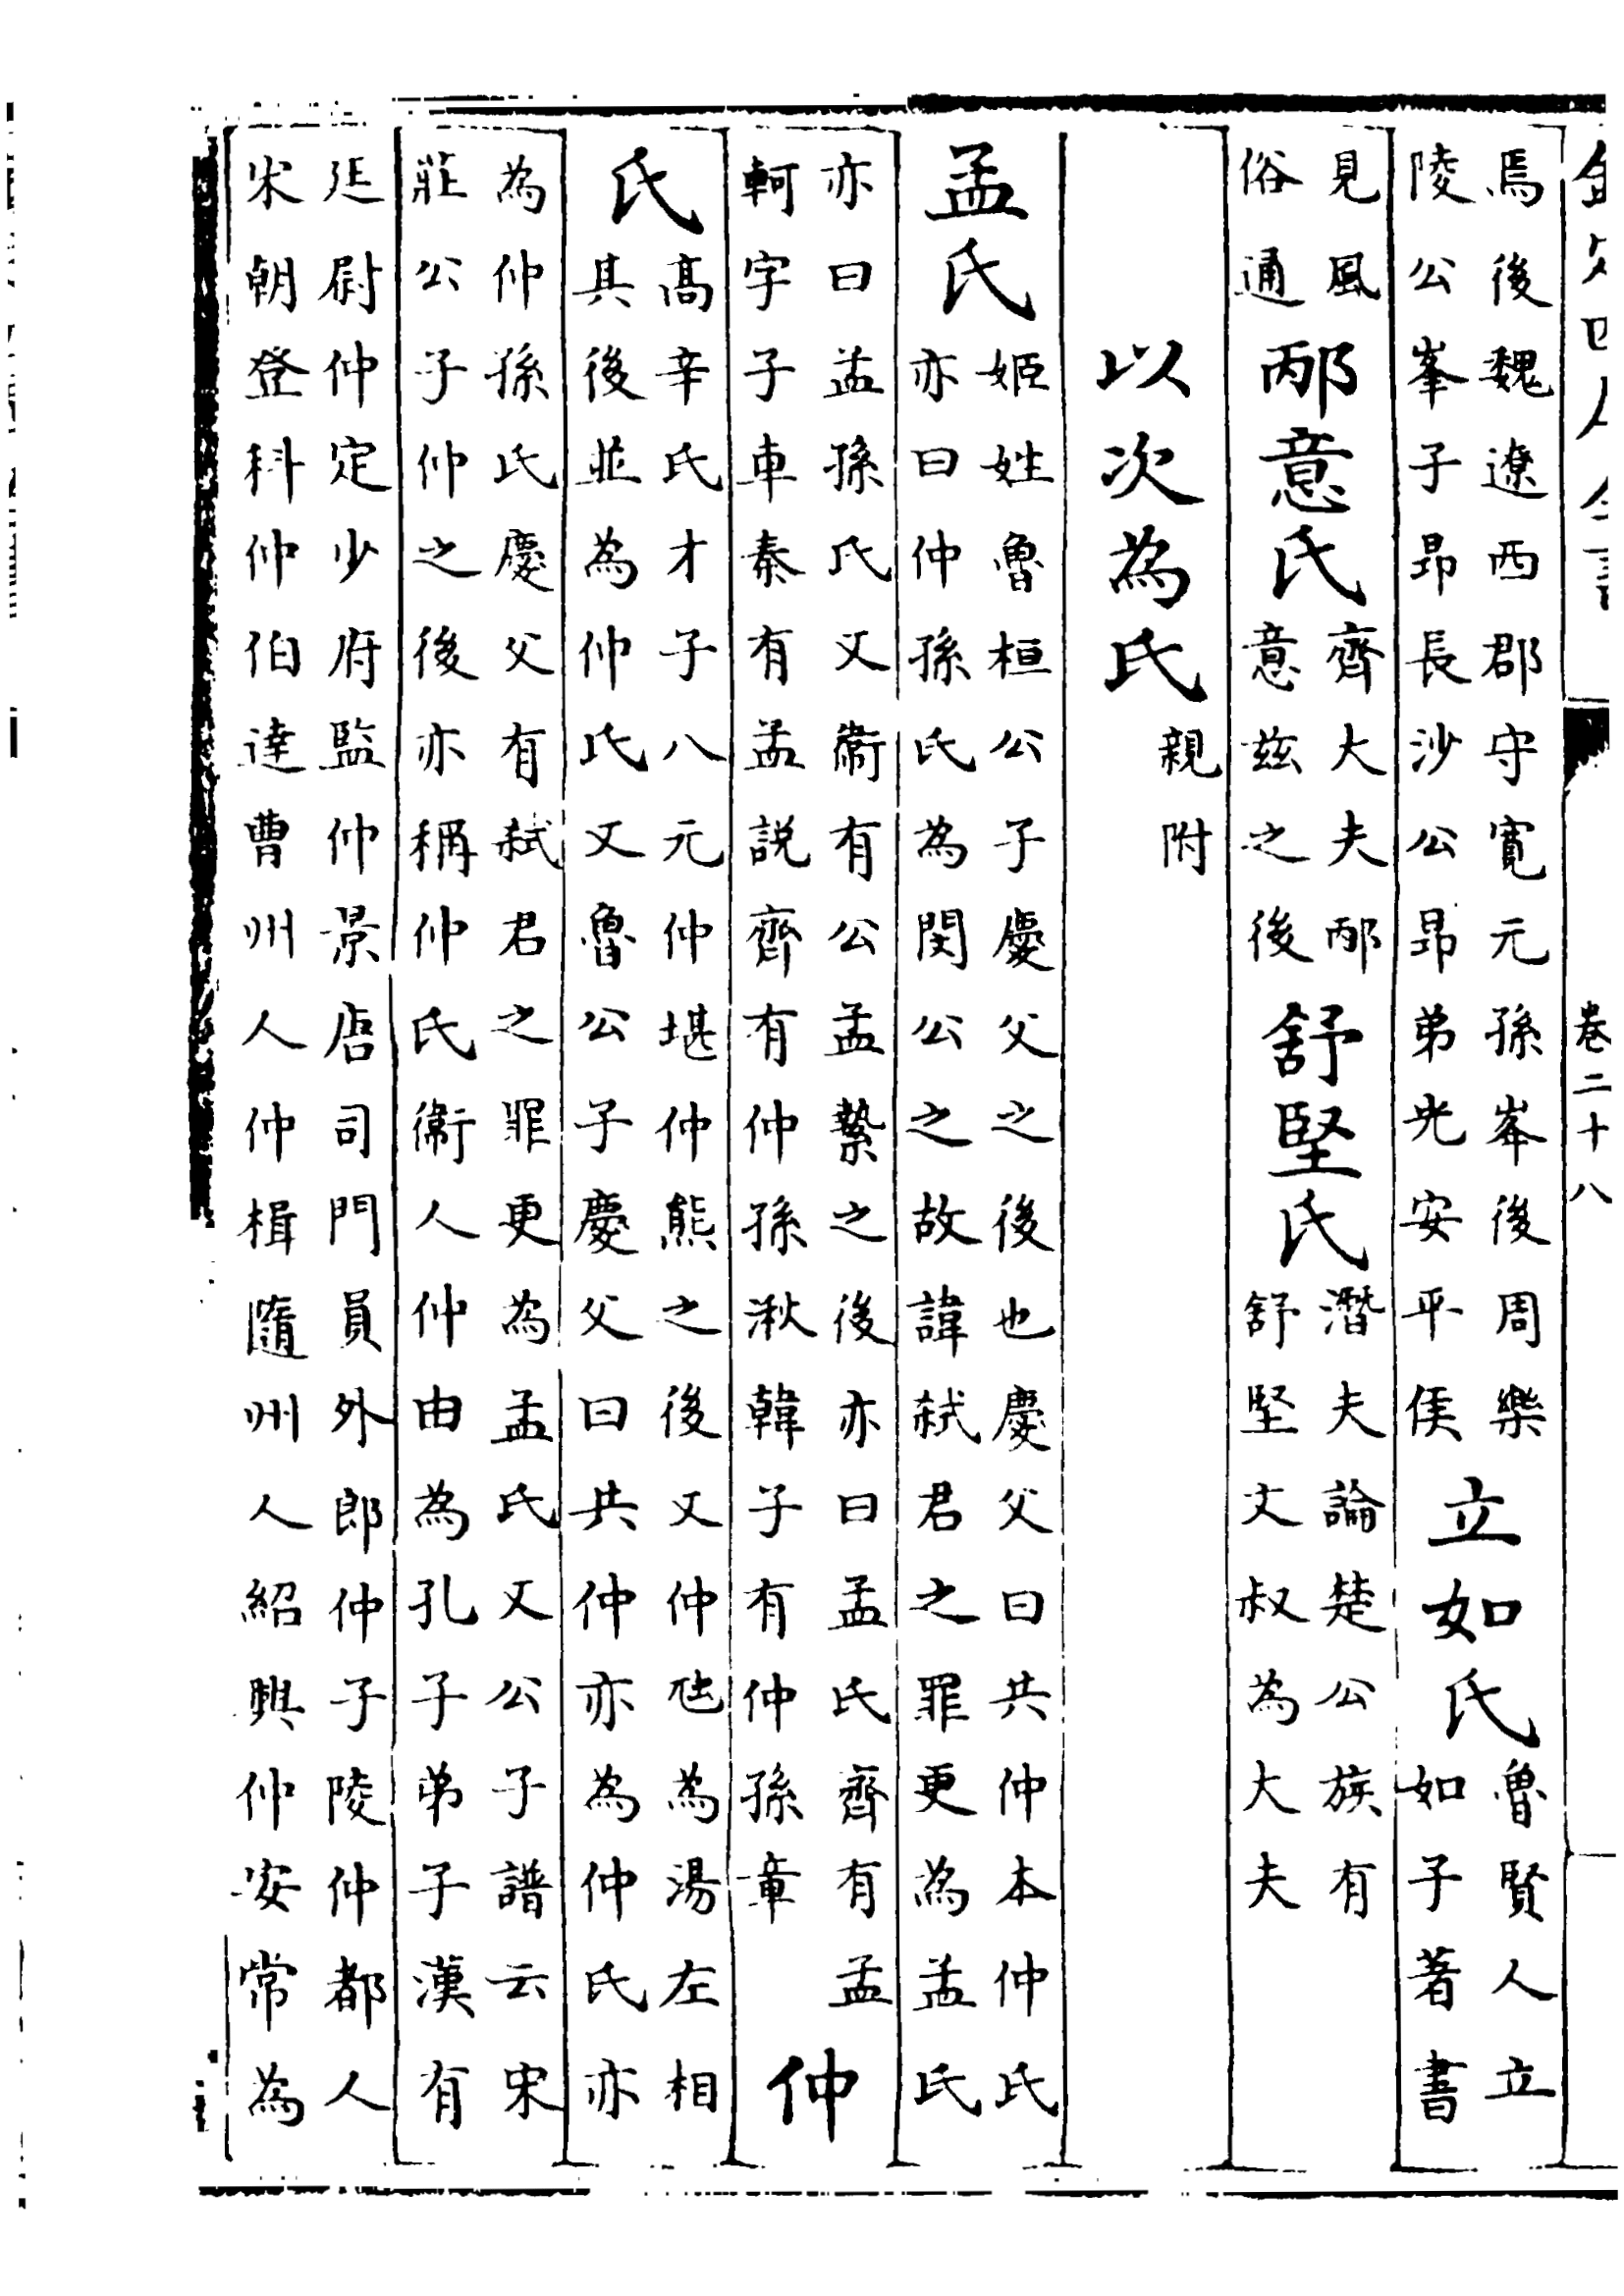 卷二十八
焉後魏遼西郡守寛元孫峯後周樂
陵公峯子昻長沙公昻弟光安平侯
立如氏
魯賢人立
如子著書
見風
俗通
邴意氏
齊大夫邴
意兹之後
舒堅氏
潛夫論楚公族有
舒堅文叔為大夫
以次為氏
親附
孟氏
姬姓魯桓公子慶父之後也慶父曰共仲本仲氏
亦曰仲孫氏為閔公之故諱弑君之罪更為孟氏
亦曰孟孫氏又衞有公孟縶之後亦曰孟氏齊有孟
軻字子車秦有孟説齊有仲孫湫韓子有仲孫章
仲
氏
高辛氏才子八元仲堪仲熊之後又仲虺為湯左相
其後並為仲氏又魯公子慶父曰共仲亦為仲氏亦
為仲孫氏慶父有弑君之罪更為孟氏又公子譜云宋
莊公子仲之後亦稱仲氏衞人仲由為孔子弟子漢有
廷尉仲定少府監仲景唐司門員外郎仲子陵仲都人
宋朝登科仲伯達曹州人仲楫隨州人紹興仲安常為